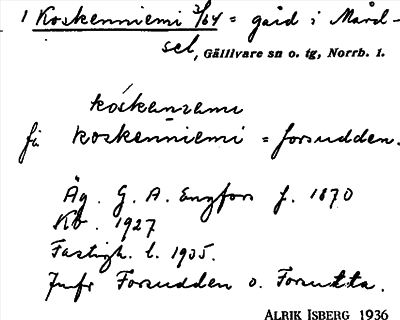 1 Koskenniemi 3/64 = gård i Mård-
sel, Gällivare sn o. tg, Norrb. l.
kóskanıemı
fi koskenniemi = forsudden.
Äg. G. A. Engfors f. 1870
Kb. 1927
Fastigh. l. 1935.
Jmfr Forsudden o. Forsutta.
ALRIK ISBERG 1936